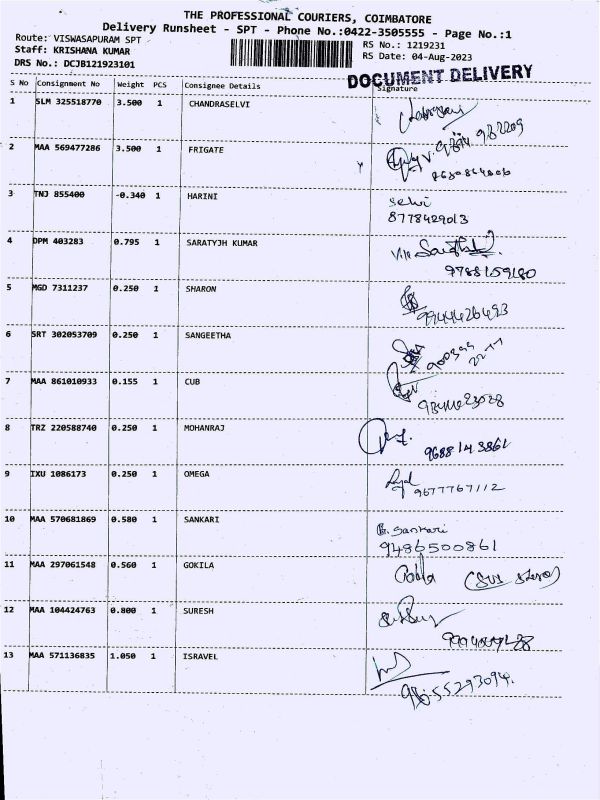 THE PROFESSIONAL COURIERS, COIMBATORE
Delivery Runsheet - SPT - Phone No.:0422-3505555 - Page No.:1
Route: VISWASAPURAM SPT
RS No.: 1219231
Staff: KRISHANA KUMAR
RS Date: 04-Aug-2023
DRS No.: DCJB121923101
DOCUMENT DELIVERY
S No Consignment No Weight PCS Consignee Details Signature
1 SLM 325518770 3.500 1 CHANDRASELVI
2 MAA 569477286 3.500 1 FRIGATE
3 TNJ 855400 -0.340 1 HARINI Selvi
8778429013
4 DPM 403283 0.795 1 SARATYJH KUMAR
9788159180
5 MGD 7311237 0.250 1 SHARON
9944426493
6 SRT 302053709 0.250 1 SANGEETHA
7 MAA 861010933 0.155 1 CUB
8 TRZ 220588740 0.250 1 MOHANRAJ
9688143861
9 IXU 1086173 0.250 1 OMEGA
9677767112
10 MAA 570681869 0.580 1 SANKARI B. Sankari
9486500861
11 MAA 297061548 0.560 1 GOKILA
12 MAA 104424763 0.800 1 SURESH
13 MAA 571136835 1.050 1 ISRAVEL